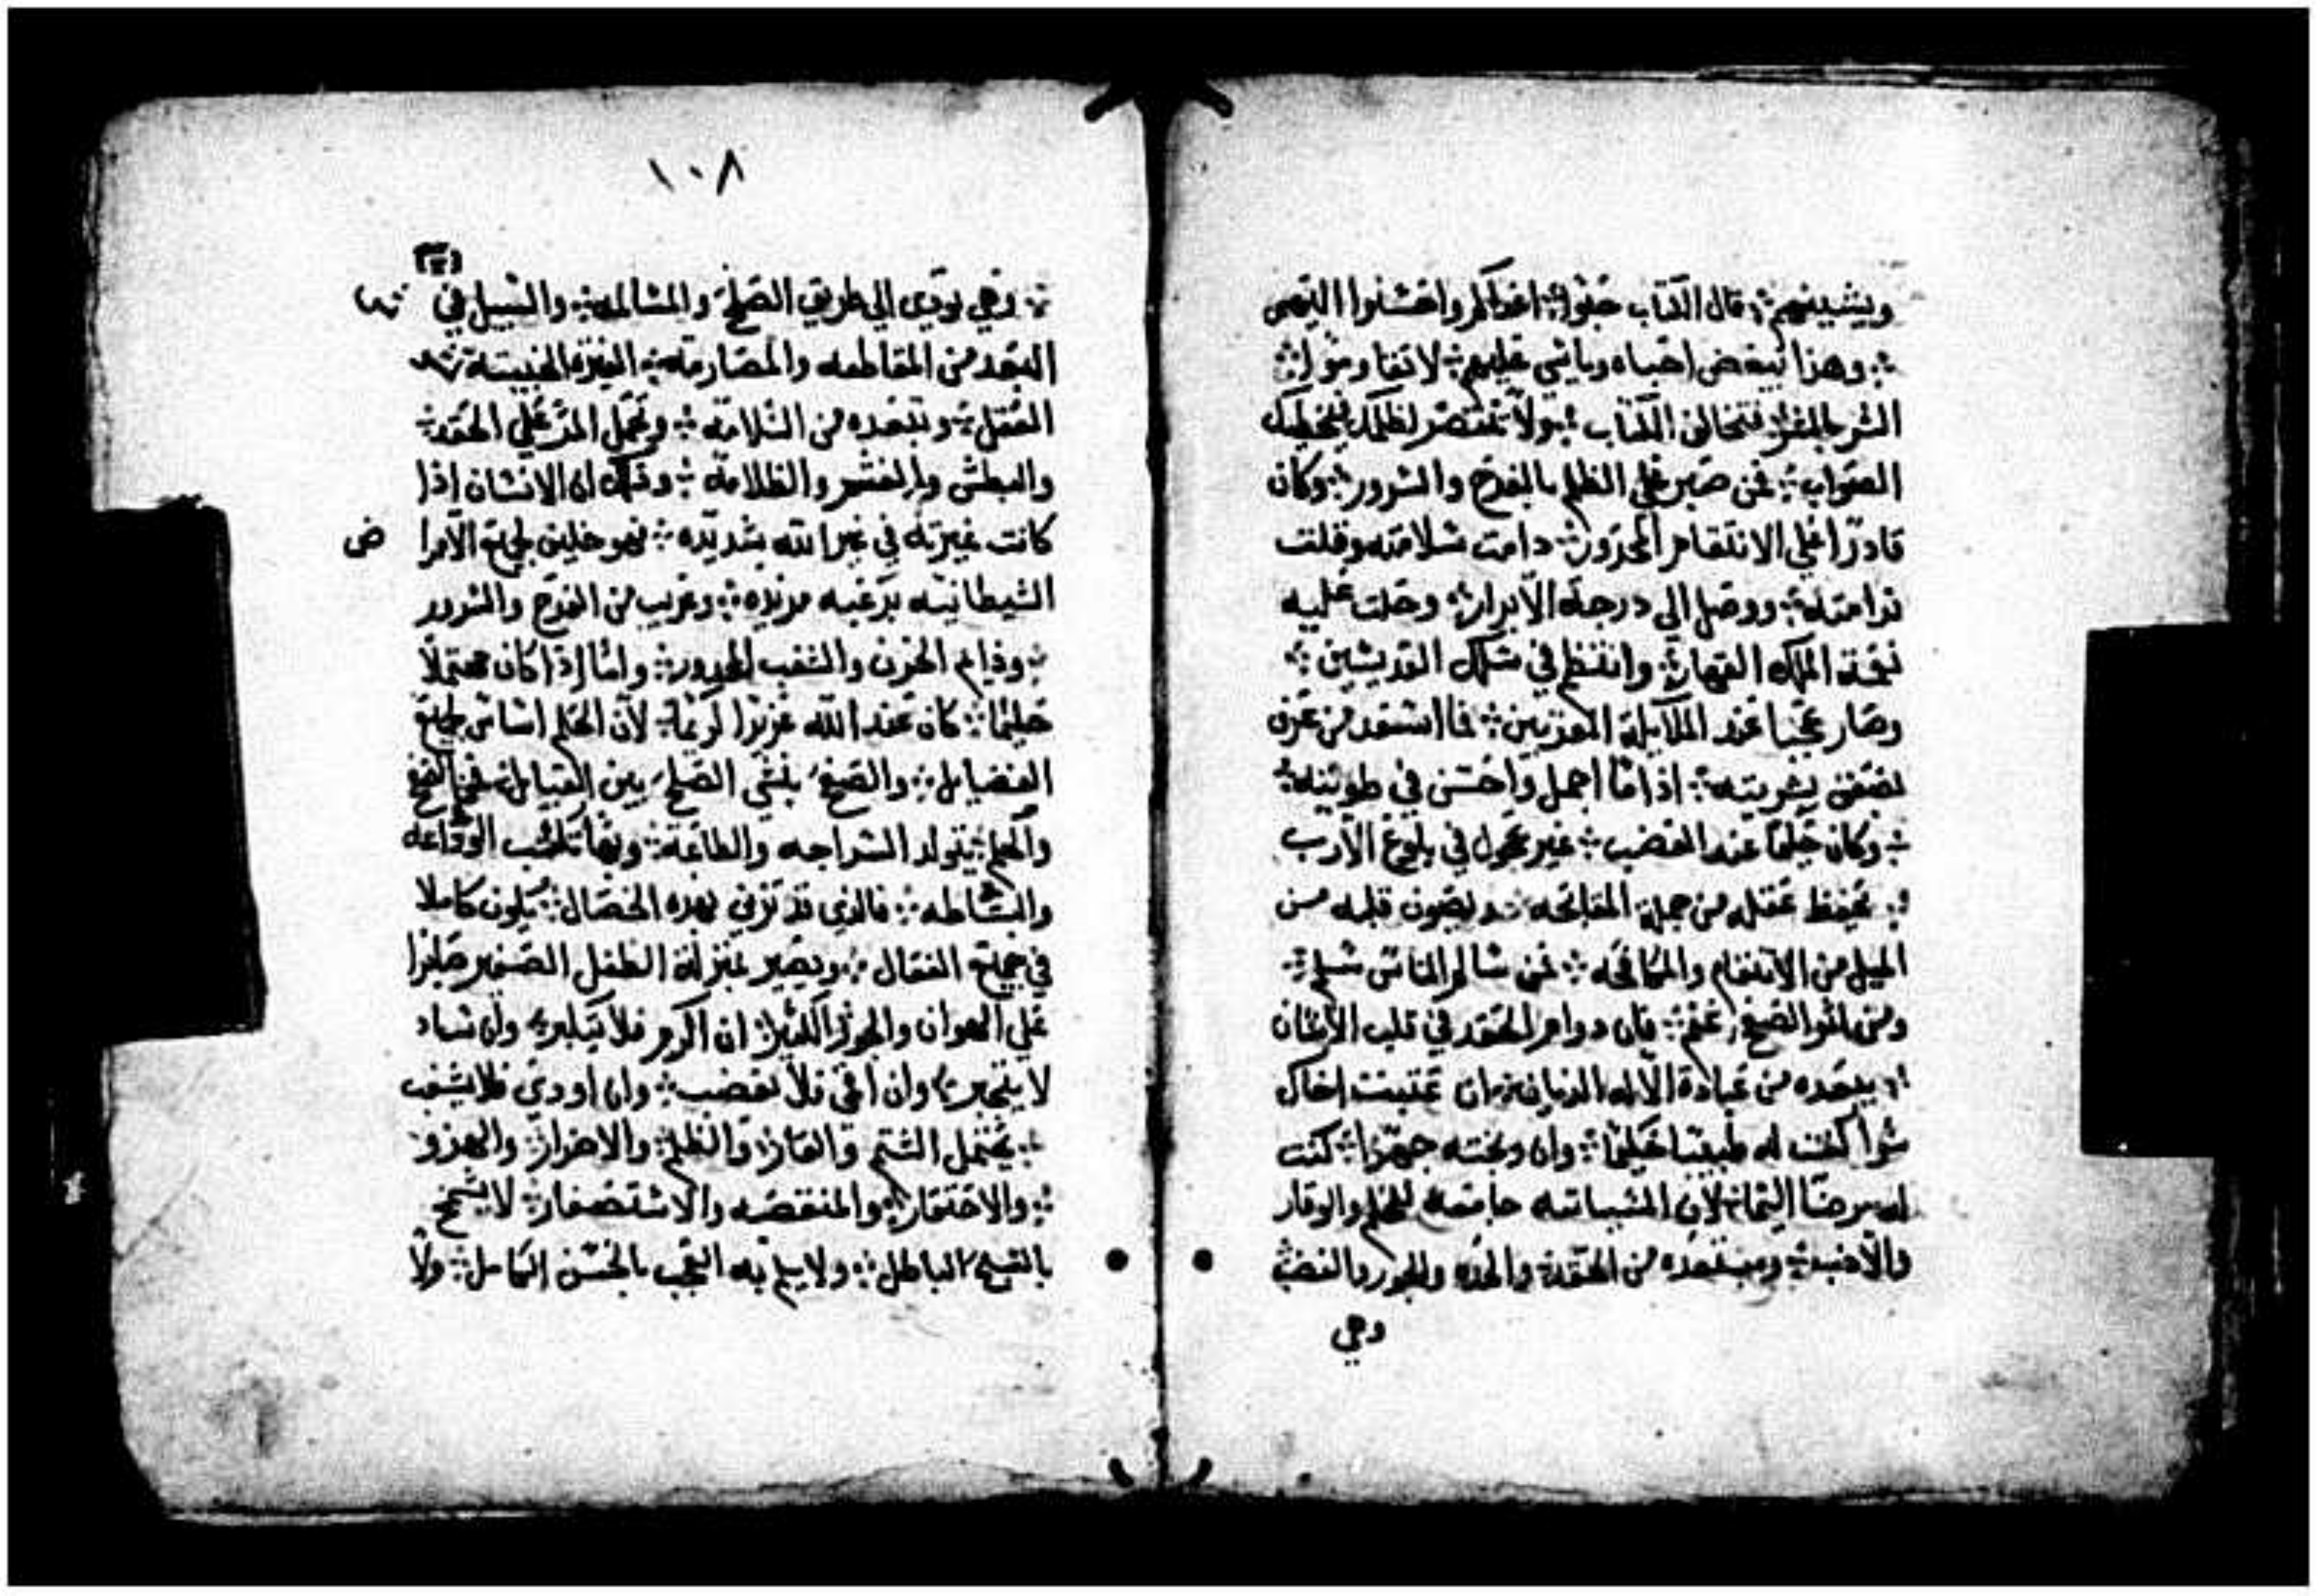 ويشينهم ❖ قال الكتاب حبوا اعداكم واحسنوا اليهم
❖ وهذا يبغض احباه وياسي عليهم ❖ لا تقاوموا ❖
الشر بالشر فتخالف الكتاب ❖ ولا تنتصر لظلمك فيخطيك
الصواب ❖ فمن صبر علي الظلم بالفرح والسرور ❖ وكان
قادرا علي الانتقام المحرور ❖ دامت سلامته وقلت
ندامته ❖ ووصل الي درجة الابرار ❖ وحلت عليه
نعمة الملك القهار ❖ وانتظم في سلك القديسين ❖
وصار عجبا عند الملايكة المعززين ❖ فما اسعد من عرف
لضعف بشريته ❖ اذا ما اجمل واحسن في طويته ❖
❖ وكان حليما عند الغضب ❖ غير عجول في بلوغ الارب
❖ يحفظ عقله من جملة المقابحه ❖ ويصون قلبه من
الميل من الانتقام والمكافحه ❖ فمن سالم الناس سلم ❖
ومن الصفح غنم ❖ فان دوام الحقد في قلب الانسان
❖ يبعده من عبادة الاله الديان ❖ ان عتبت اخاك
سرا كنت له طبيبا حكيما ❖ وان وبخته جهرا ❖ كنت
له مرضا اليما ❖ لان المسباته جامعه للحلم والوقار
والادب ❖ ومبعده من الحقد والحده والجور والغضب
وهي
١٠٨
❖ وهي تودي الي طريق الصلح والمسالمه ❖ والسبيل في
البعد من المقاطعه والمصارمه ❖ الغيره الخبيته
العقل ❖ وتبعده من السلامه ❖ وتحمل المر علي الحقد ❖
والبطش والغشم والظلامه ❖ وذلك ان الانسان اذا
كانت غيرته في غير الله شديده ❖ فهو خليف لجميع الآمرا ض
الشيطانيه برغبه مزيده ❖ وغريب من الفرح والسرور
❖ ودايم الحزن والشغب ❖ واما اذا كان محتملا
حليما ❖ كان عند الله عزيزا كريما ❖ لان الحلم اساس جميع
الفضايل ❖ والصفح ينشي الصلح بين القبايل ❖ فمن الصفح
والحلم ❖ يتولد السراجه والطاعة ❖ وبهما تكتسب الوداعه
والبساطه ❖ فالذي قد تزين بهذه الخصال ❖ يكون كاملا
في جميع الفعال ❖ ويصير بمنزلة الطفل الصغير صابرا
علي الهوان والجور الكثير ❖ ان اكرم فلا يتكبر ❖ وان ساد
لا يتجبر ❖ وان اغتي فلا يغضب ❖ وان اودي فلا يشغب
❖ يحتمل الشتم والعار ❖ والظلم ❖ والاضرار ❖ والهزو
❖ والاحتقار ❖ والمنقصه والاستصغار ❖ لا يسمح
بالقبيح الباطل ❖ ولا يلم به العجب بالحسن الكامل ❖ ولا